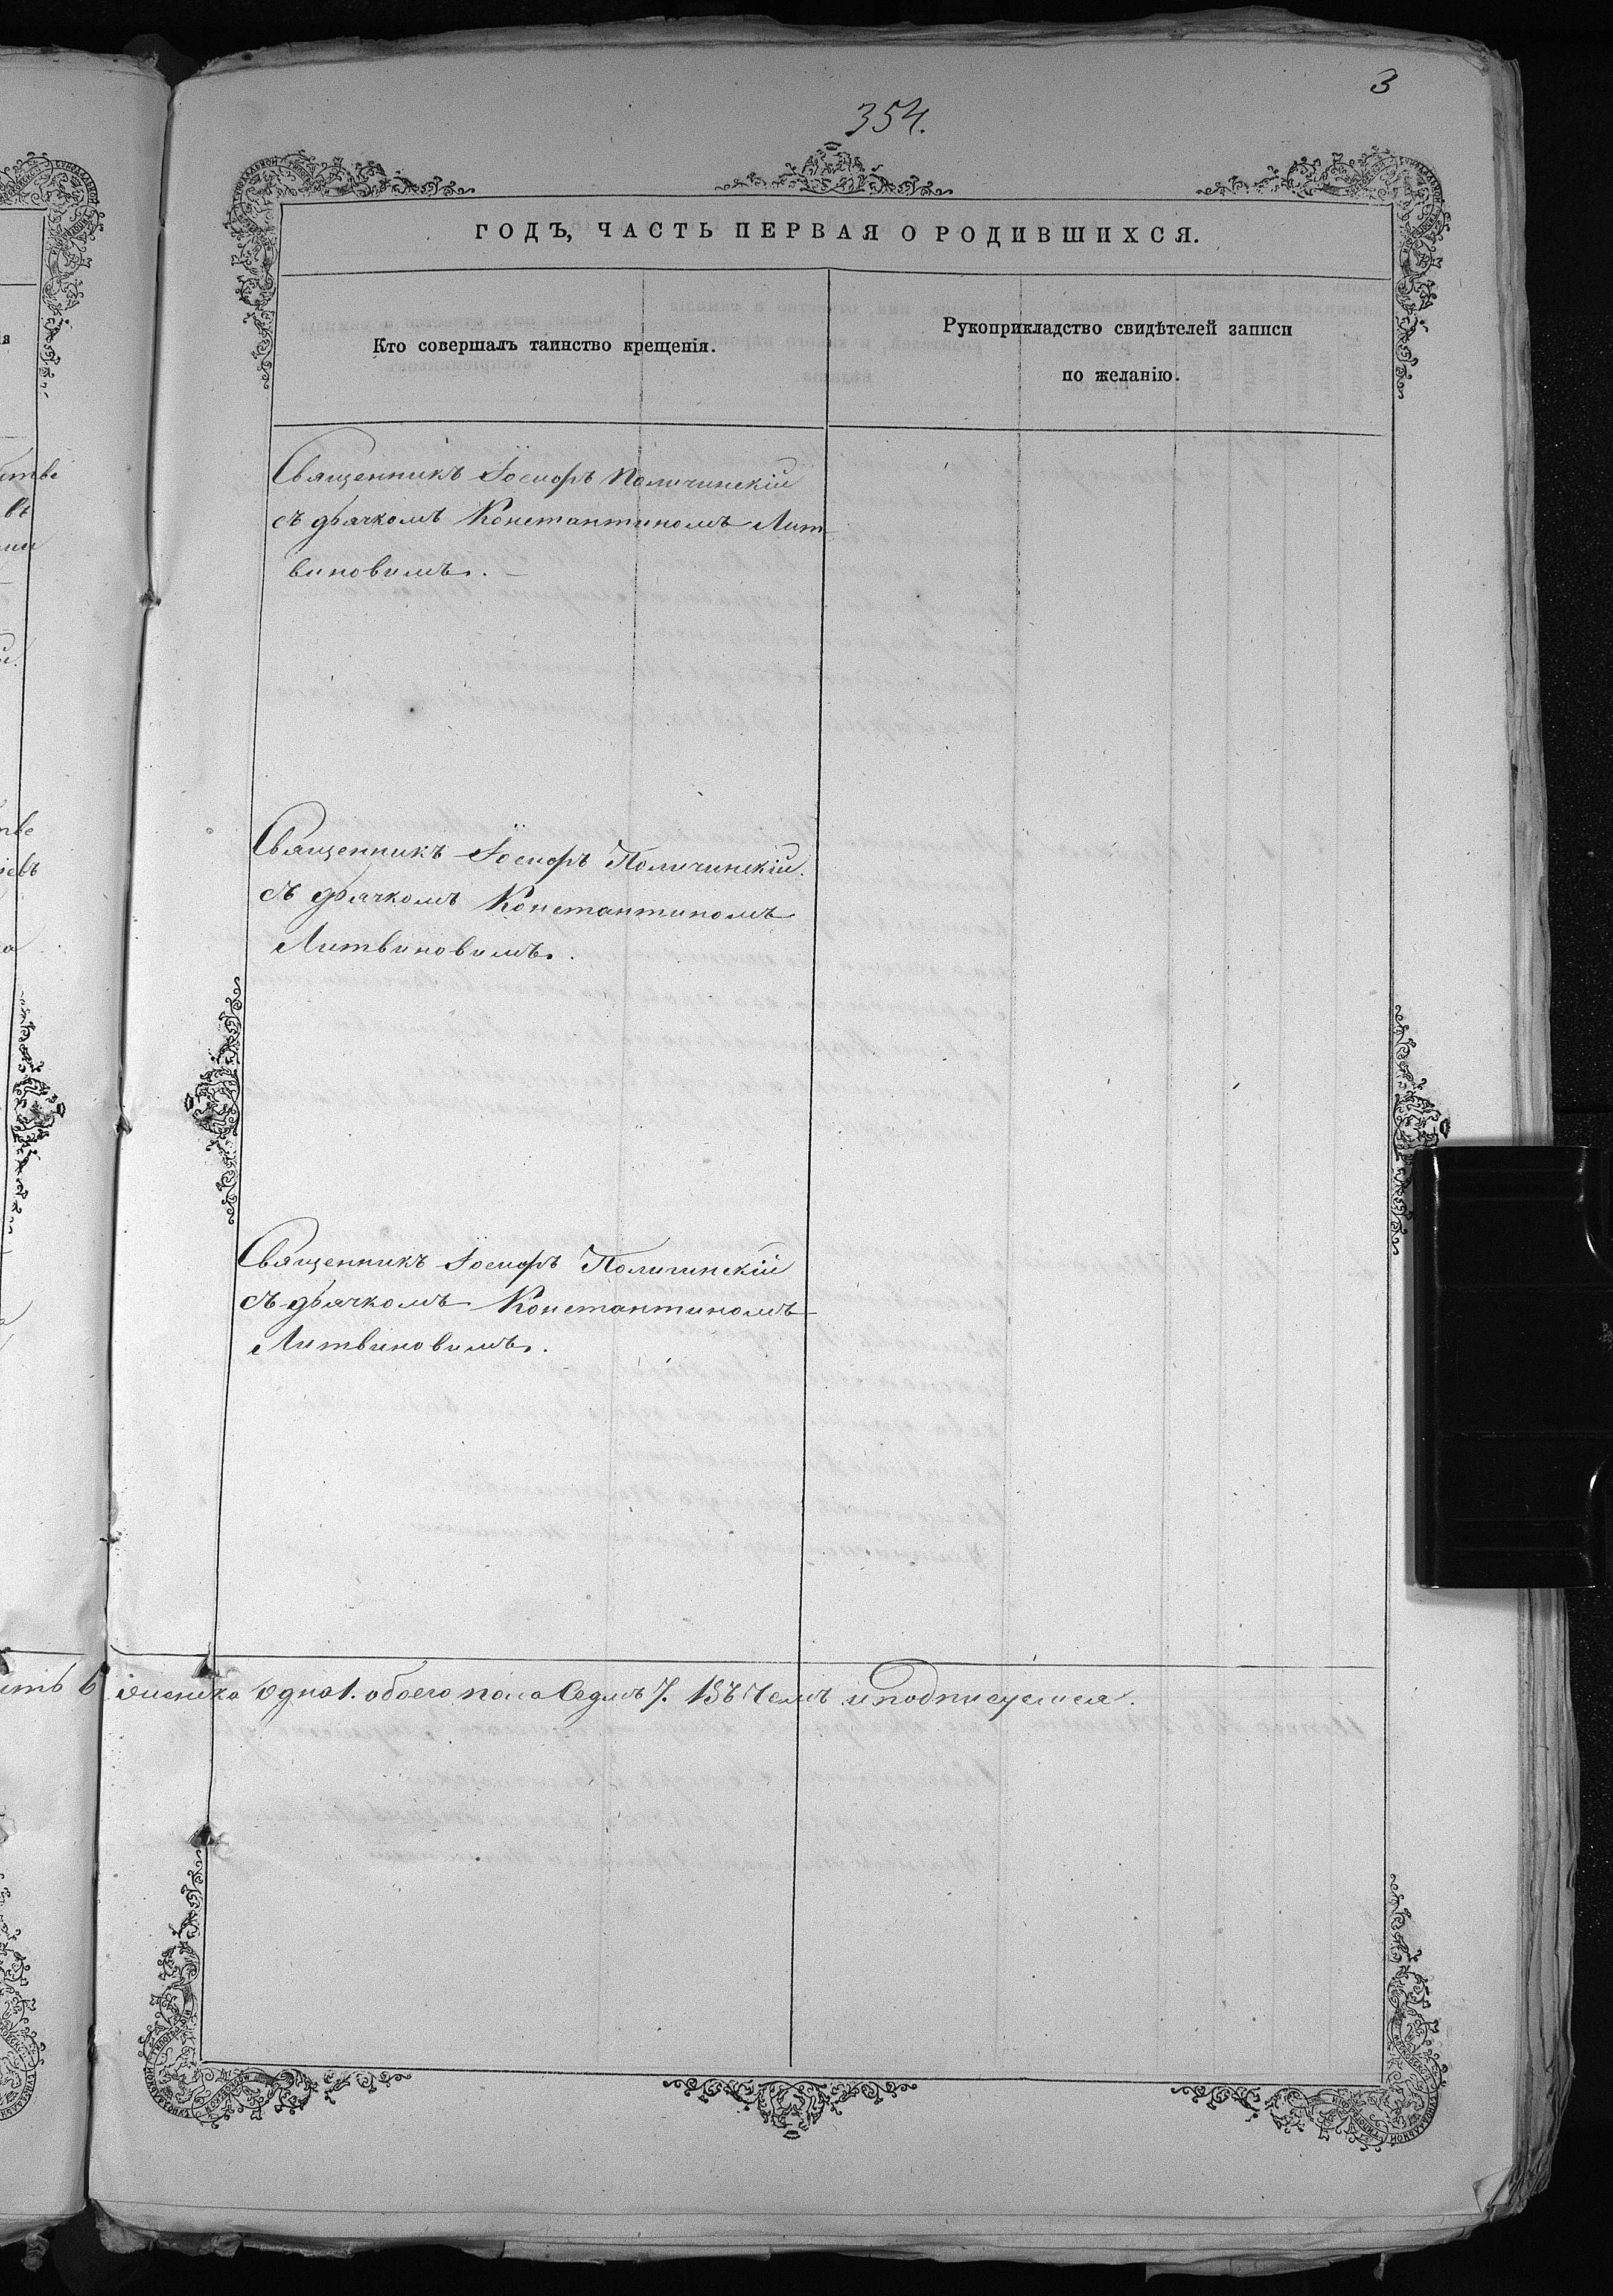 3
354.
ГОДЪ, ЧАСТЬ ПЕРВАЯ О РОДИВШИХСЯ.
Кто совершалъ таинство крещенія.
Рукоприкладство свидѣтелей записи
по желанію.
Священникъ Іосифъ Поличинскій
съ дьячкомъ Константиномъ Лит
виновимъ. –
Священникъ Іосифъ Поличинскій.
съ дьячкомъ Константиномъ
Литвиновимъ.
Священникъ Іосифъ Поличинскій
съ дьячкомъ Константиномъ
Литвиновимъ.
6 женска одна 1. обоего пола Седмъ 7. Въ Чемъ и подписуемся.